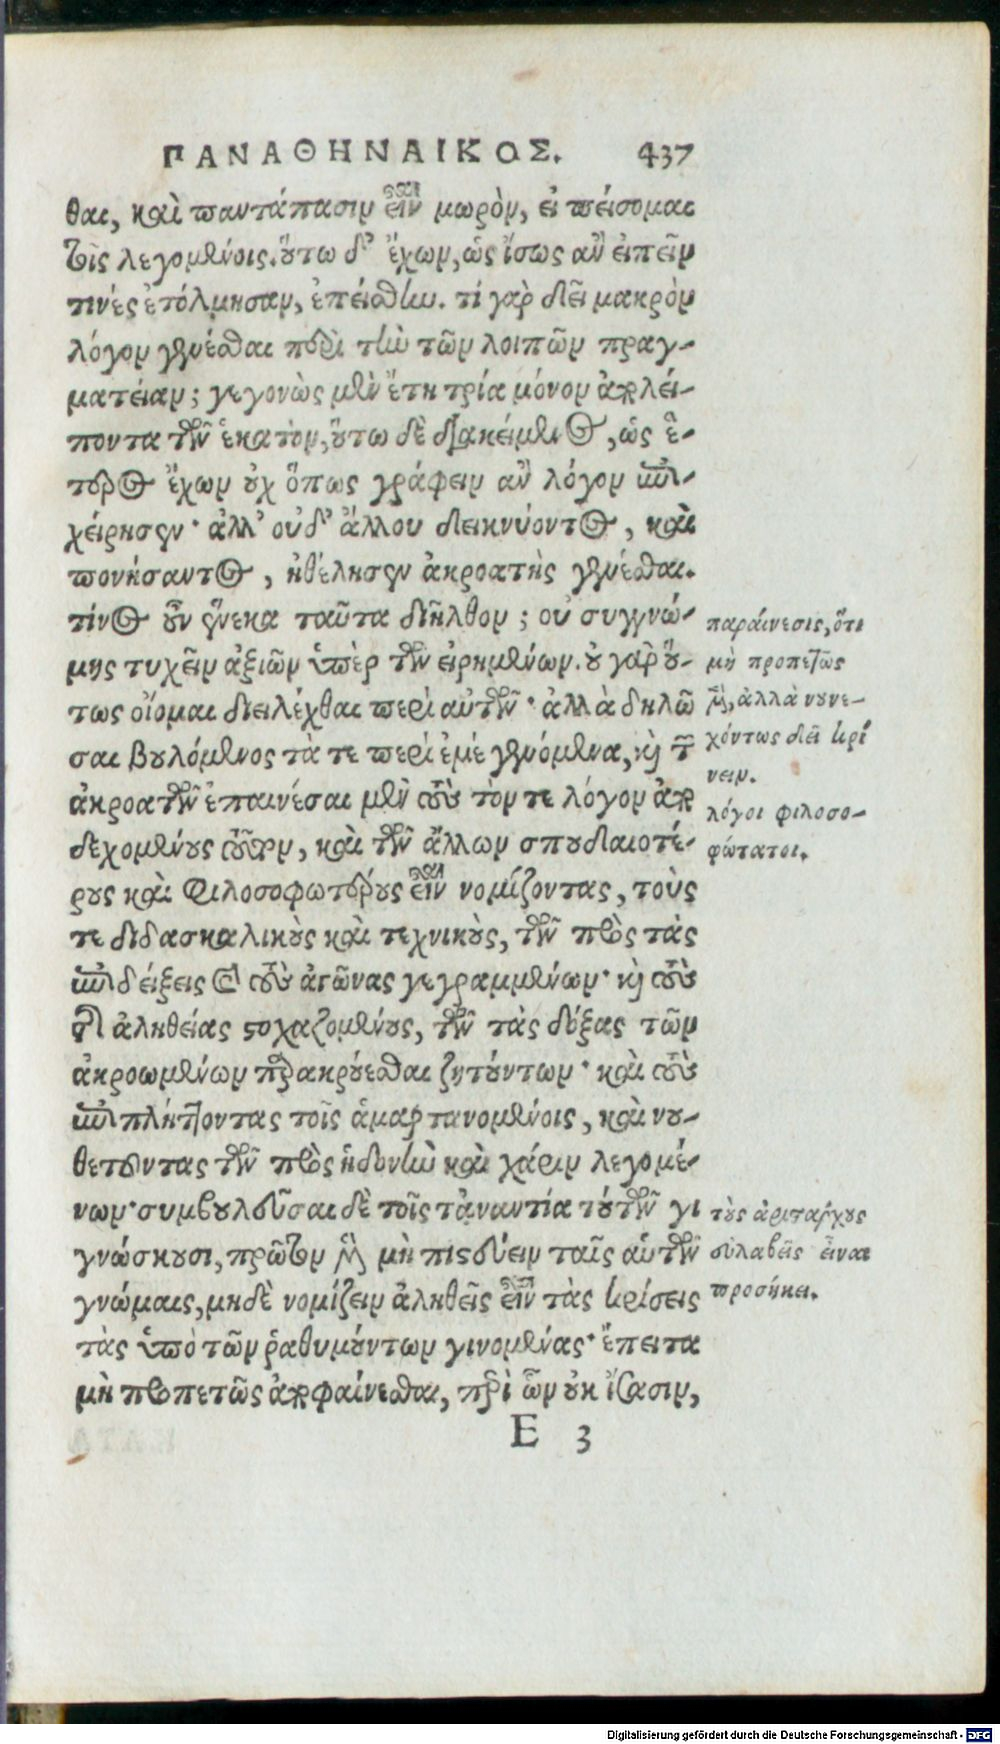 ΠΑΝΑΘΗΝΑΙΚΟΣ. 437
θαι, καὶ παντάπασιν εἶναι μωρὸν, εἰ πείσομαι
τοῖς λεγομένοις. οὕτω δ' ἔχων, ὡς ἴσως ἂν εἰπεῖν
τινές ἐτόλμησαν, ἐπείσθην. τί γὰρ δεῖ μακρὸν
λόγον γενέσθαι περὶ τὴν τῶν λοιπῶν πραγ-
ματείαν; γεγονὼς μὲν ἔτη τρία μόνον ἀπολεί-
ποντα τῶν ἑκατὸν, οὕτω δὲ διακείμενος, ὡς ἕ-
τερος ἔχων οὐχ ὅπως γράφειν ἂν λόγον ἐπι-
χείρησεν· ἀλλ' οὐδ' ἄλλου δεικνύοντος, καὶ
πονήσαντος, ἠθέλησεν ἀκροατὴς γενέσθαι.
τίνος οὖν ἕνεκα ταῦτα διῆλθον; οὐ συγγνώ-
μης τυχεῖν ἀξιῶν ὑπὲρ τῶν εἰρημένων. οὐ γὰρ οὕ-
τως οἴομαι διειλέχθαι περὶ αὐτῶν· ἀλλὰ δηλῶ
σαι βουλόμενος τὰ τε περὶ ἐμέ γενόμενα, καὶ τῶν
ἀκροατῶν ἐπαινέσαι μὲν τοὺς τόν τε λόγον ἀπο
δεχομένους τοῦτον, καὶ τῶν ἄλλων σπουδαιοτέ-
ρους καὶ φιλοσοφωτέρους εἶναι νομίζοντας, τοὺς
τε διδασκαλικοὺς καὶ τεχνικοὺς, τῶν πρὸς τὰς
ἐπιδείξεις καὶ τοὺς ἀγῶνας γεγραμμένων· καὶ τοὺς
τῆς ἀληθείας στοχαζομένους, τῶν τὰς δόξας τῶν
ἀκροωμένων παρακρούεσθαι ζητούντων· καὶ τοὺς
ἐπιπλήττοντας τοῖς ἁμαρτανομένοις, καὶ νου-
θετοῦντας τῶν πρὸς ἡδονὴν καὶ χάριν λεγομέ-
νων· συμβουλεῦσαι δὲ τοῖς τἀναντία τούτων γι
γνώσκουσι, πρῶτον μὲν μὴ πιστεύειν ταῖς αὑτῶν
γνώμαις, μηδὲ νομίζειν ἀληθεῖς εἶναι τὰς κρίσεις
τὰς ὑπὸ τῶν ῥαθυμούντων γινομένας· ἔπειτα
μὴ προπετῶς ἀποφαίνεσθαι, περὶ ὧν οὐκ ἴσασιν,
E 3
παραίνεσις, ὅτι
μὴ προπετῶς
ἀλλὰ νουνε-
χόντως δεῖ κρί
νειν.
λόγοι φιλοσο-
φώτατοι.
τοὺς ἀριστάρχους
εὐλαβεῖς εἶναι
προσήκει.
Digitalisierung gefördert durch die Deutsche Forschungsgemeinschaft - DFG